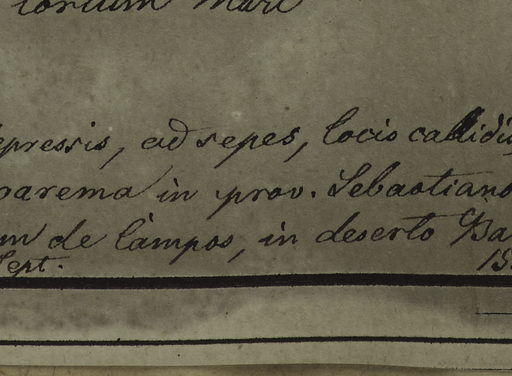 torium Mart
epressis, ad sepes, locis callidi
parema in prov. Sebastiano
um de Campos, in deserto Ba
Sept. 15